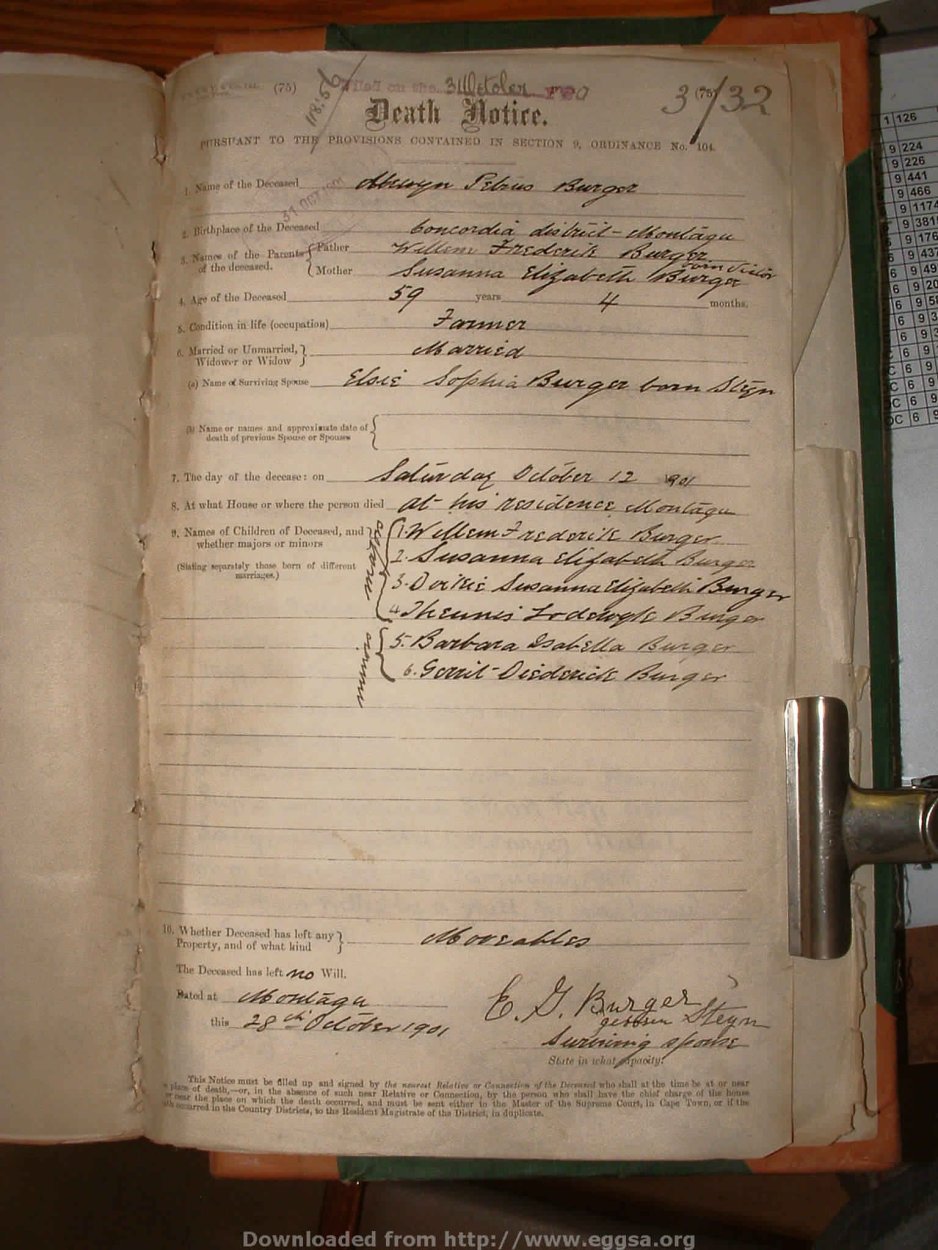 (75) Filed on the 31 October 3/732 (75)
11856
Death Notice.
PURSUANT TO THE PROVISIONS CONTAINED IN SECTION 9, ORDINANCE No. 104.
1. Name of the Deceased Alewyn Petrus Burger
31 OCT 1901
2. Birthplace of the Deceased Concordia district - Montagu
3. Names of the Parents of the deceased. { Father Willem Frederik Burger
Mother Susanna Elizabeth Burger born
4. Age of the Deceased 59 years 4 months.
5. Condition in life (occupation) Farmer
6. Married or Unmarried, Widower or Widow } Married
(a) Name of Surviving Spouse Elsie Sophia Burger born Steyn
(b) Name or names and approximate date of
death of previous Spouse or Spouses {
7. The day of the decease: on Saturday October 12 1901
8. At what House or where the person died at his residence Montagu
9. Names of Children of Deceased, and
whether majors or minors
(Stating separately those born of different
marriages.)
majors { 1. Willem Frederik Burger
2. Susanna Elizabeth Burger
3. Susanna Elizabeth Burger
4. Theunis Lodewyk Burger
minors { 5. Barbara Isabella Burger
6. Gerrit Diederick Burger
10. Whether Deceased has left any
Property, and of what kind } Moveables
The Deceased has left no Will.
Dated at Montagu
this 28th October 1901
E. S. Burger
geboren Steyn
Surviving spouse
State in what capacity.
This Notice must be filled up and signed by the nearest Relative or Connection of the Deceased who shall at the time be at or near
place of death,—or, in the absence of such near Relative or Connection, by the person who shall have the chief charge of the house
or near the place on which the death occurred, and must be sent either to the Master of the Supreme Court, in Cape Town, or if the
occurred in the Country Districts, to the Resident Magistrate of the District, in duplicate.
1 126
9 224
9 226
9 441
9 466
9 1174
9 381
9 176
9 437
Downloaded from http://www.eggsa.org